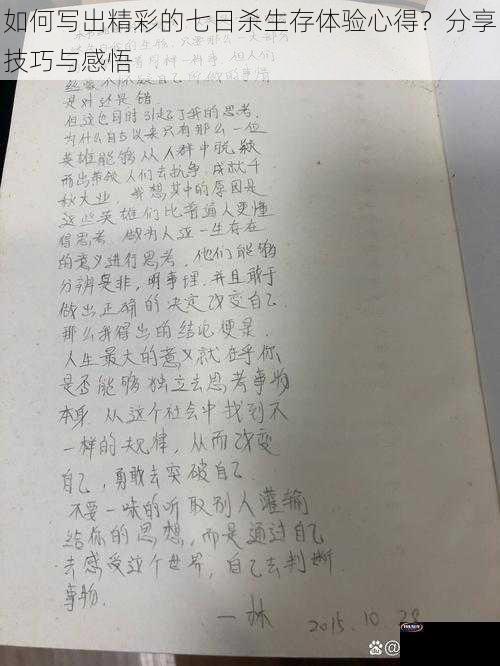 如何写出精彩的七日杀生存体验心得？分享
技巧与感悟
是对还是错
但这也同时引起了我的思考.
为什么自古以来只有那么一位
英雄能够从人群中脱颖
而出带领人们去抗争,成就千
秋大业, 我想其中的原因是
这些英雄们比普通人更懂
得思考. 做为人这一生存在
的意义进行思考, 他们能够
分辨是非, 明事理, 并且敢于
做出正确的决定改变自己.
那么我得出的结论便是.
人生最大的意义就在乎你
是否能够独立去思考事物
本身. 从这个社会中找到不
一样的规律, 从而改变
自己, 勇敢去突破自己.
不要一味的听取别人灌输
给你的思想, 而是通过自己
去感受这个世界, 自己去判断
事物.
一林 2015.10.28
百度@